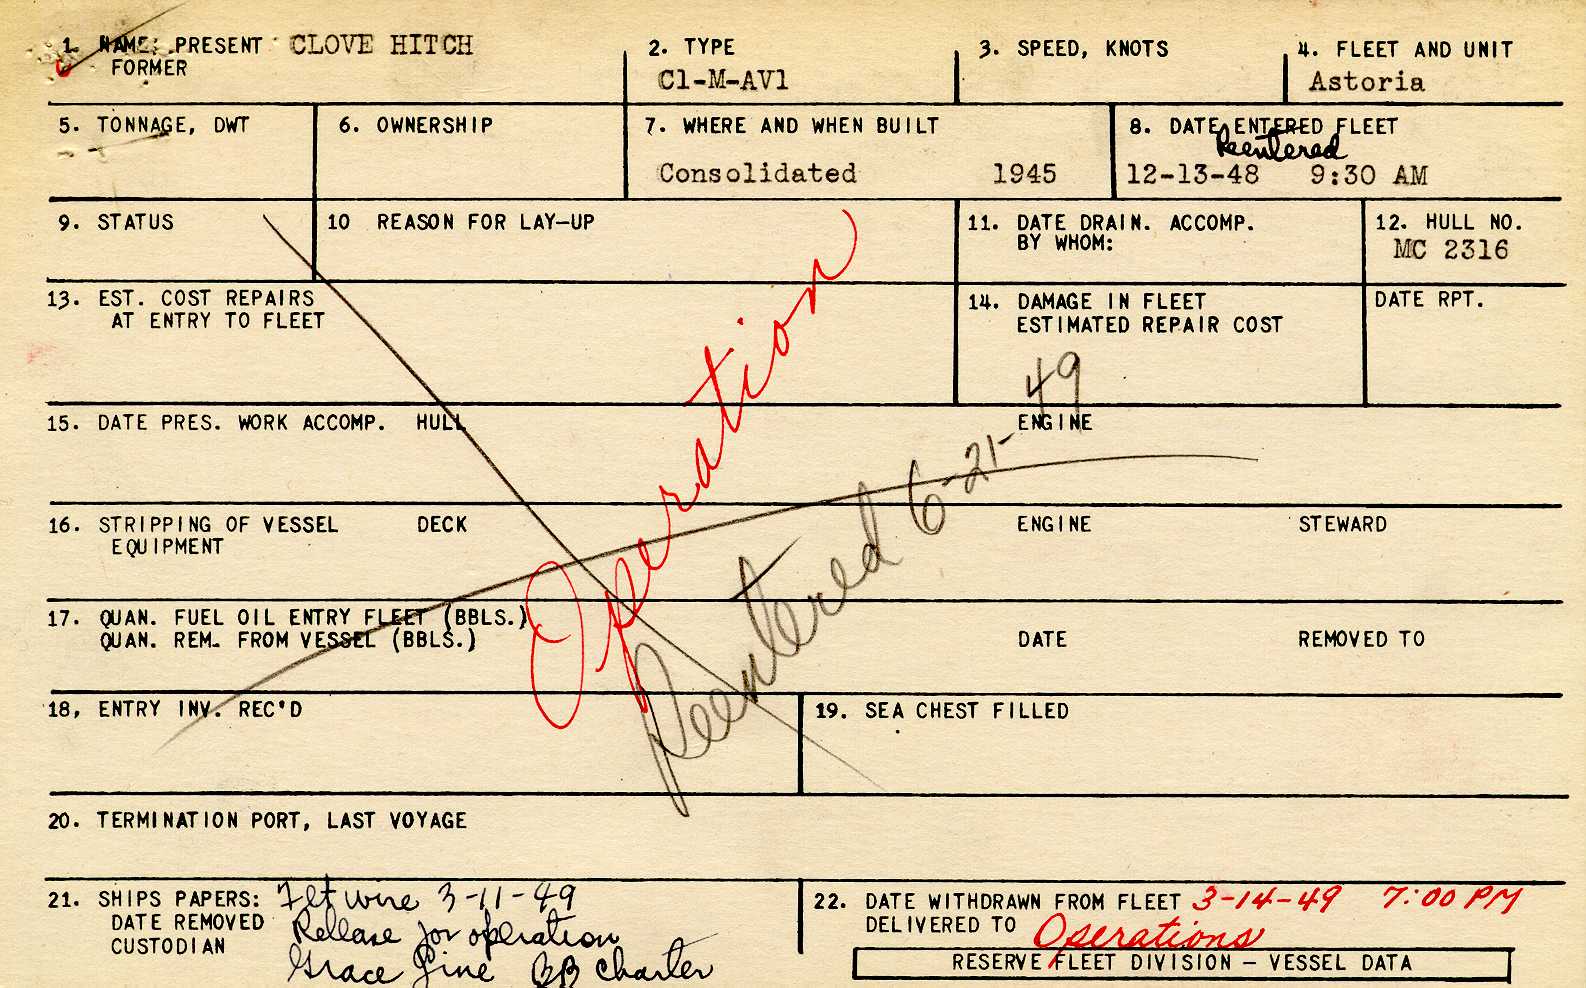 1. NAME: PRESENT CLOVE HITCH
FORMER
2. TYPE
C1-M-AV1
3. SPEED, KNOTS
4. FLEET AND UNIT
Astoria
5. TONNAGE, DWT
6. OWNERSHIP
7. WHERE AND WHEN BUILT
Consolidated 1945
8. DATE ENTERED FLEET
Reentered
12-13-48 9:30 AM
9. STATUS
10 REASON FOR LAY-UP
11. DATE DRAIN. ACCOMP.
BY WHOM:
12. HULL NO.
MC 2316
13. EST. COST REPAIRS
AT ENTRY TO FLEET
14. DAMAGE IN FLEET
ESTIMATED REPAIR COST
DATE RPT.
Operation
Reentered 6-21-49
15. DATE PRES. WORK ACCOMP. HULL ENGINE
16. STRIPPING OF VESSEL DECK ENGINE STEWARD
EQUIPMENT
17. QUAN. FUEL OIL ENTRY FLEET (BBLS.)
QUAN. REM. FROM VESSEL (BBLS.) DATE REMOVED TO
18, ENTRY INV. REC'D
19. SEA CHEST FILLED
20. TERMINATION PORT, LAST VOYAGE
21. SHIPS PAPERS: Flt wire 3-11-49
DATE REMOVED Release for operation
CUSTODIAN Grace Line BB Charter
22. DATE WITHDRAWN FROM FLEET 3-14-49 7:00 PM
DELIVERED TO Operations
RESERVE FLEET DIVISION – VESSEL DATA